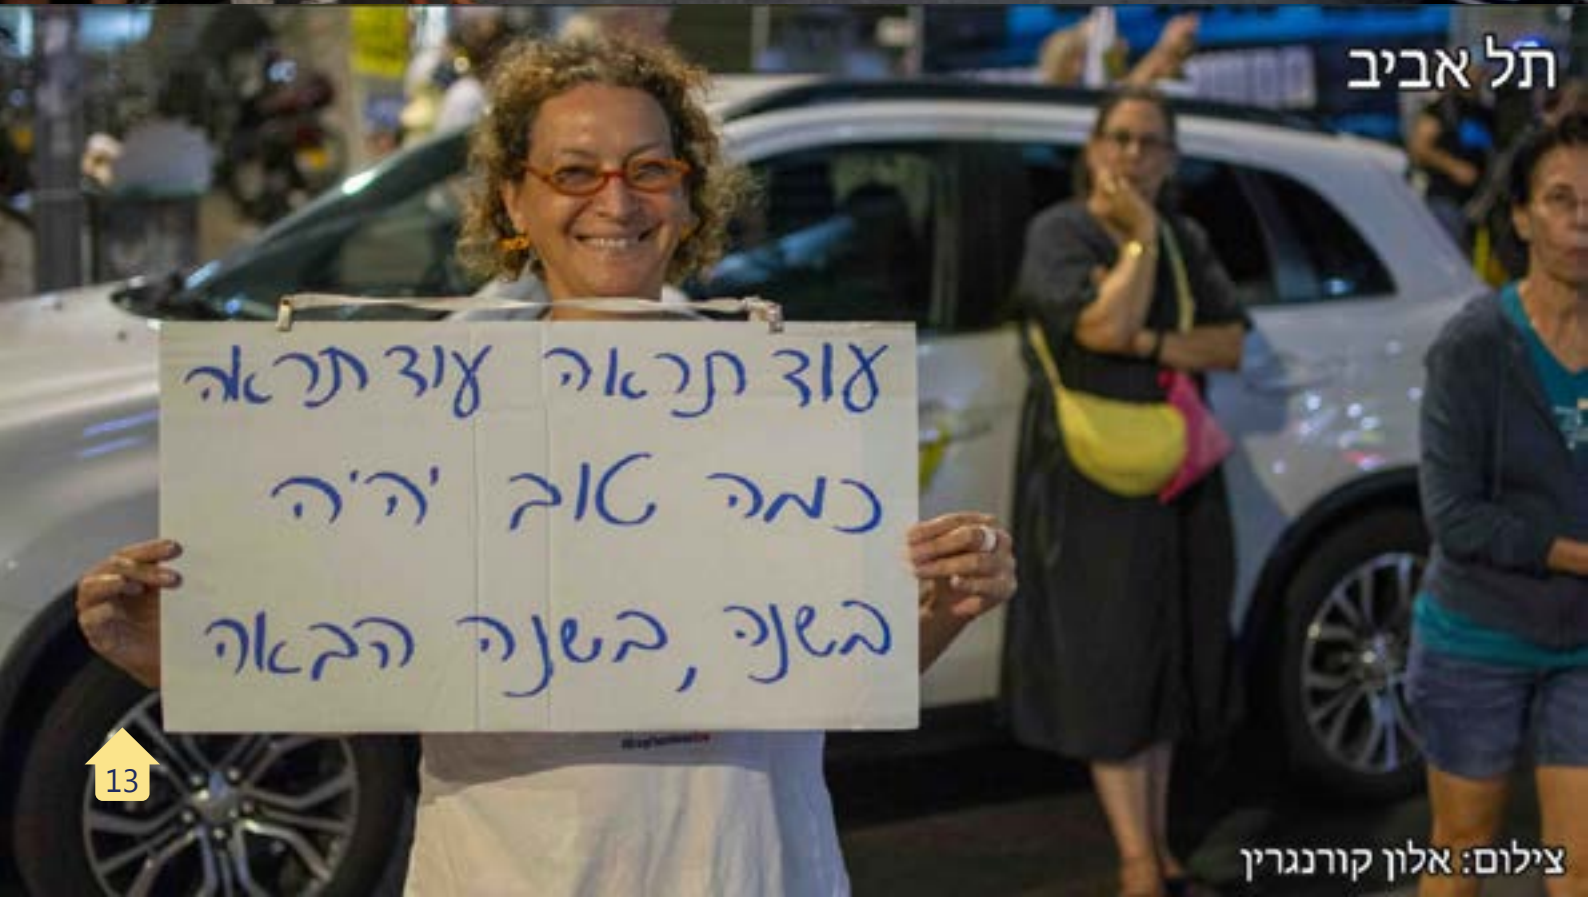 תל אביב
עוד תראה עוד תראה
כמה טוב יהיה
בשנה, בשנה הבאה
13
צילום: אלון קורנגרין